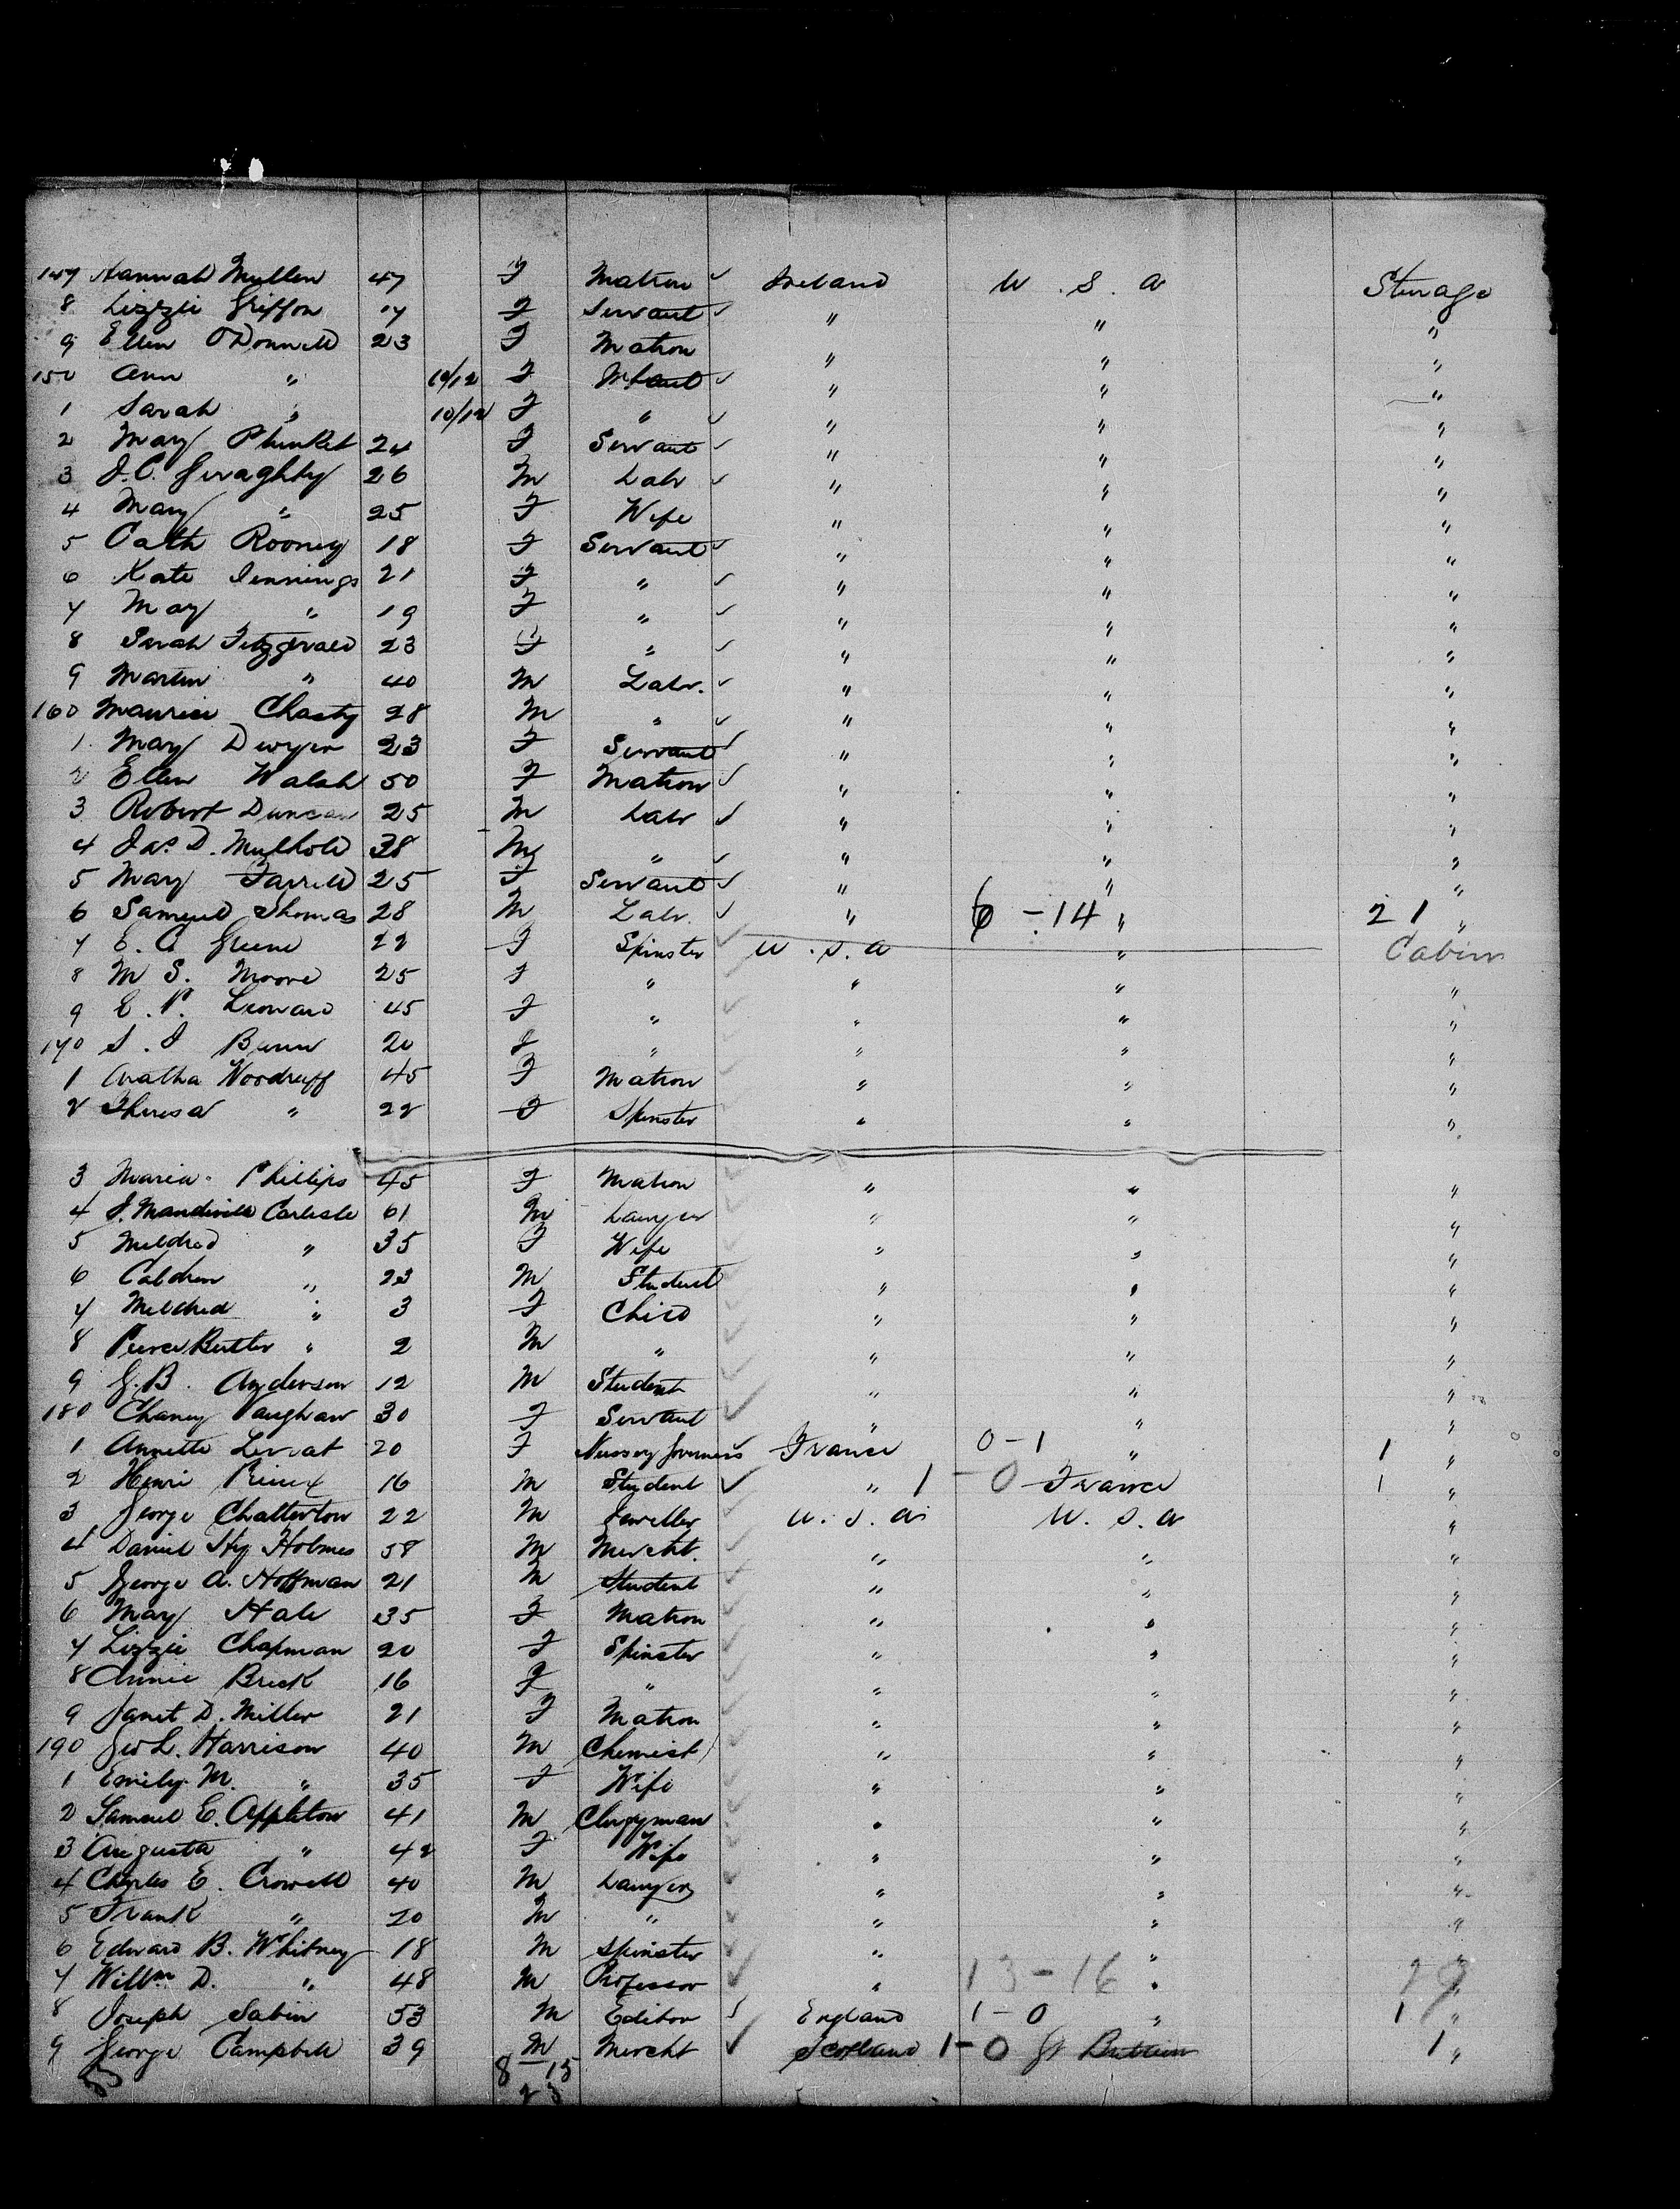 147 Hannah Mullen 47 F Matron ✓ Ireland U.S.A Sterage
8 Lizzie Griffon 17 F Servant ✓ " " "
9 Ellen O'Donnell 23 F Matron " " "
150 Ann " 10/12 F Infant ✓ " " "
1 Sarah " 10/12 F " ✓ " " "
2 Mary Plunket 24 F Servant ✓ " " "
3 J.C. Geraghty 26 M Labr ✓ " " "
4 Mary " 25 F Wife " " "
5 Cath Rooney 18 F Servant ✓ " " "
6 Kate Jennings 21 F " ✓ " " "
7 May " 19 F " ✓ " " "
8 Sarah Fitzgerald 23 F " ✓ " " "
9 Martin " 40 M Labr. ✓ " " "
160 Maurice Chasty 28 M " ✓ " " "
1 May Dwyer 23 F Servant ✓ " " "
2 Ellen Walsh 50 F Matron ✓ " " "
3 Robert Duncan 25 M Labr ✓ " " "
4 Jas. D. Mulhold 38 M " ✓ " " "
5 May Farrell 25 F Servant ✓ " " "
6 Samuel Thomas 28 M Labr. ✓ " 6-14 " 21 "
7 E. A. Greene 22 F Spinster U.S.A " Cabin
8 M S. Moore 25 F " " " "
9 E. P. Leonard 45 F " " " "
170 S. J 20 F " " " "
1 Woodruff 45 F Matron " " "
2 Theresa " 22 F Spinster " " "
3 Maria Phillips 45 F Matron " " "
4 J. Mandeville Carlisle 61 M Lawyer " " "
5 Mildred " 35 F Wife " " "
6 " 23 M Student " " "
7 Mildred " 3 F Child " " "
8 Pierce Butler " 2 M " " " "
9 G.B. Anderson 12 M Student " " "
180 Chaney Vaughan 30 F Servant " " "
1 Annette 20 F Nursery Governess France 0-1 " 1 "
2 Henri 16 M Student ✓ " 1-0 France 1 "
3 George Chatterton 22 M Jeweller U.S.A U.S.A "
4 Daniel Hy Holmes 58 M Mercht. " " "
5 George A. Hoffman 21 M Student " " "
6 May Hale 35 F Matron " " "
7 Lizzie Chapman 20 F Spinster " " "
8 Annie Brick 16 F " " " "
9 Janet D. Miller 21 F Matron " " "
190 Geo L. Harrison 40 M Chemist " " "
1 Emily M. " 35 F Wife " " "
2 Samuel E. Appleton 41 M Clergyman " " "
3 Augusta " 42 F Wife " " "
4 Charles E. Crowell 40 M Lawyer " " "
5 Frank " 20 M " " " "
6 Edward B. Whitney 18 M Spinster " " "
7 Willm D. " 48 M Professor " 13-16 " 29 "
8 Joseph Sabin 53 M Editor ✓ England 1-0 " 1 "
9 George Campbell 39 M Mercht ✓ Scotland 1-0 Gt Britain 1 "
8-15
23